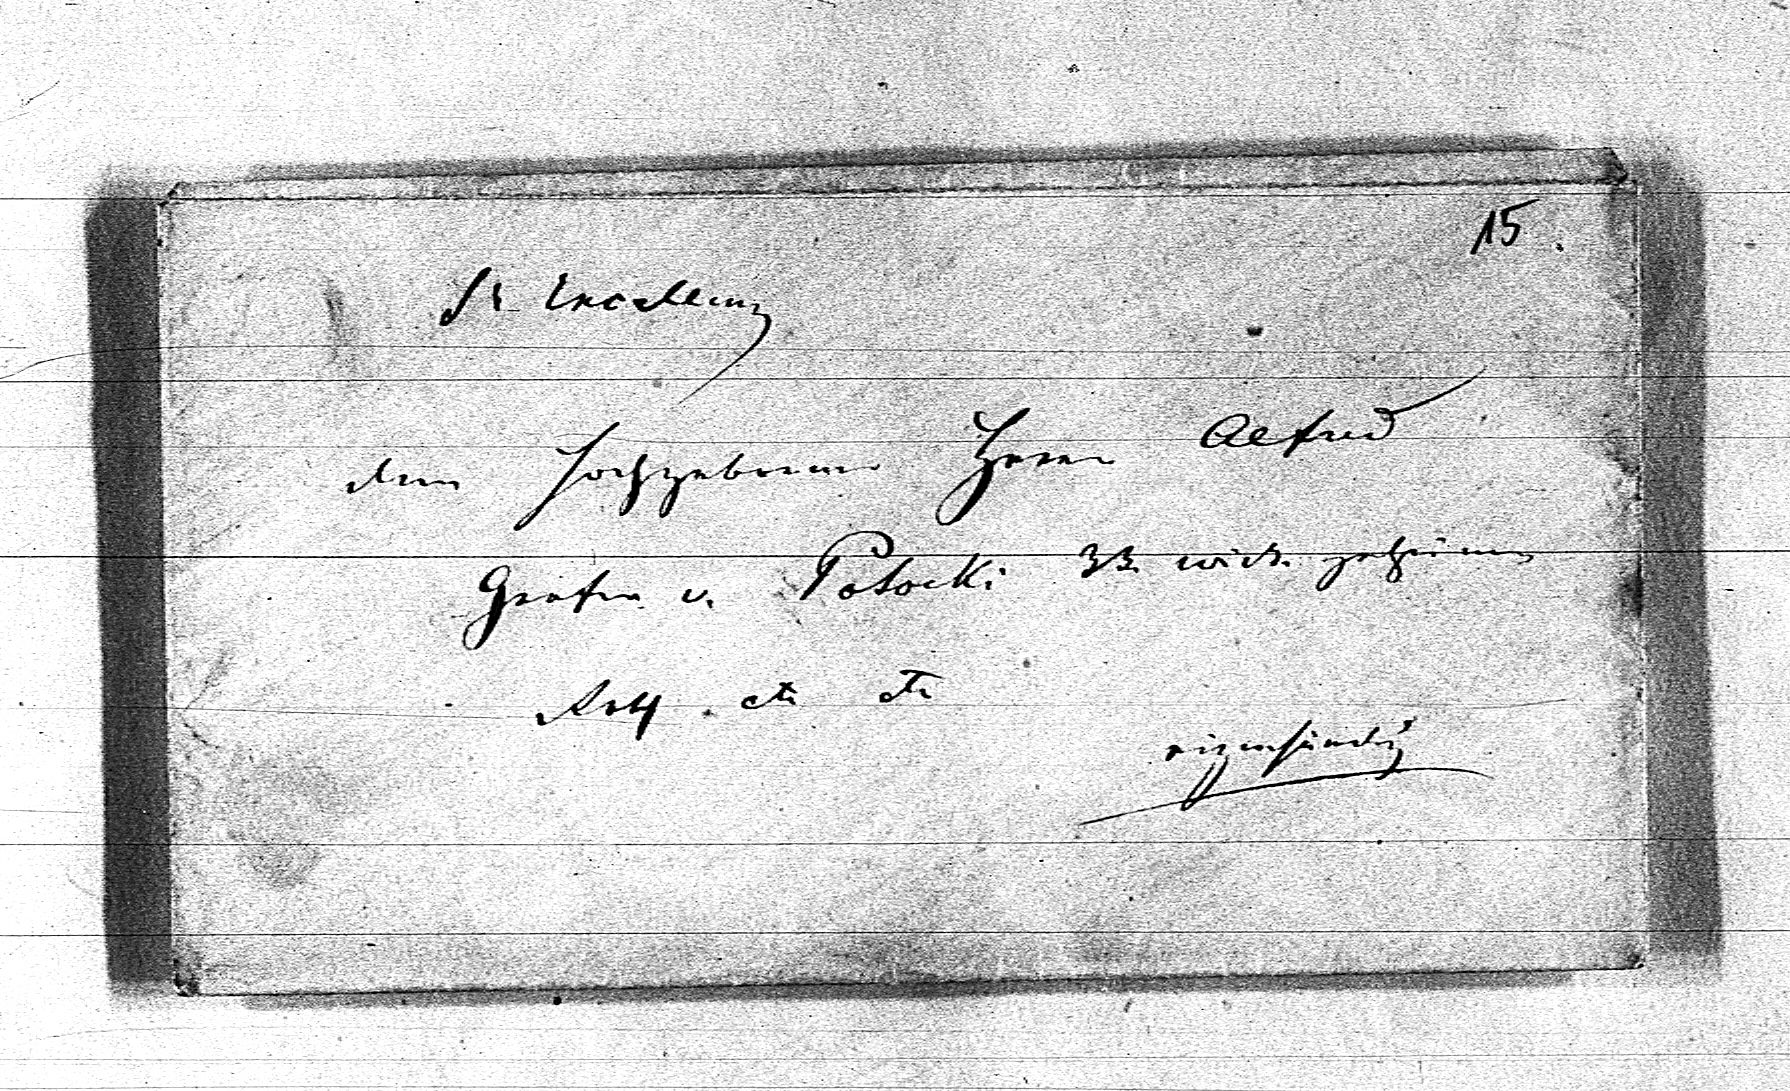 15.
Sr Excellenz
dem Hochgebornen Herrn Alfred
Grafen v. Potocki KK. wirk. geheimen
Rath . etc etc
eigenhändig